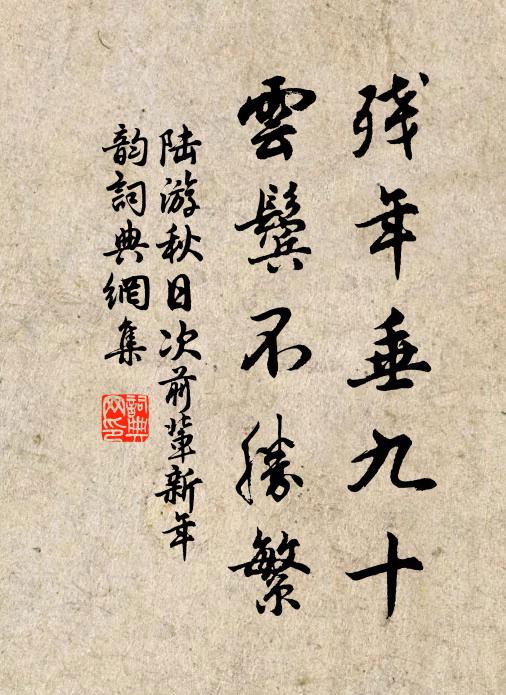 残年垂九十
雲鬢不勝繁
陆游秋日次前輩新年
韵詞典網集
詞典网印